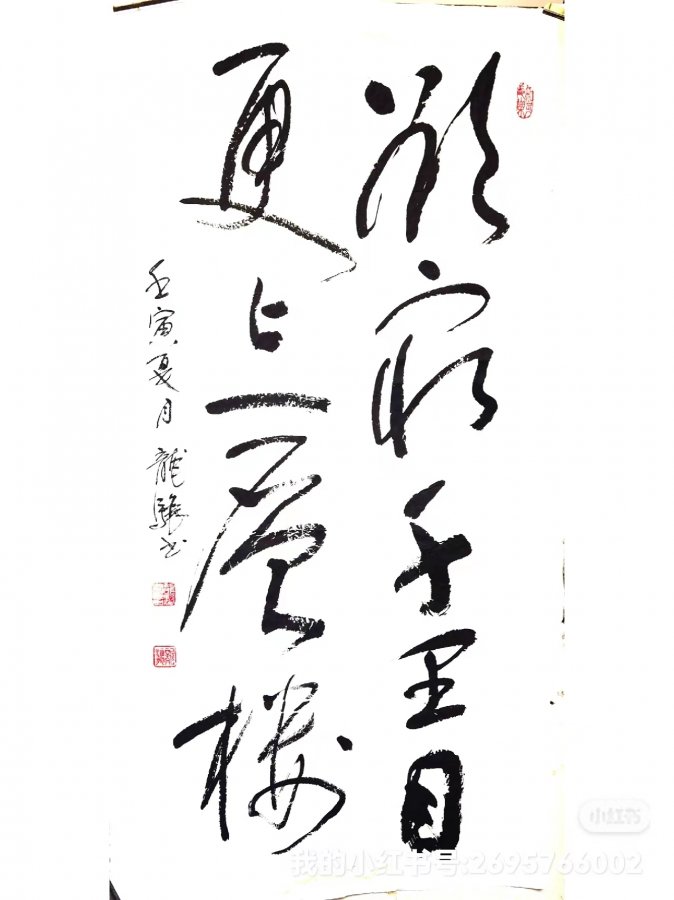 欲穷千里目
更上一层楼
壬寅夏月 龍驤书
小红书
我的小红书号:2695766002